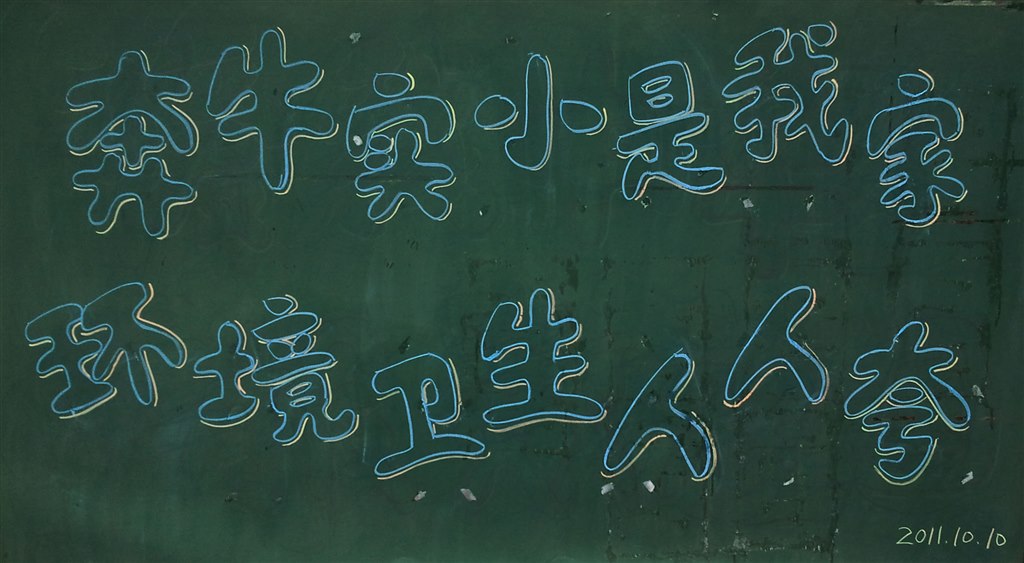 奔牛实小是我家
环境卫生人人夸
2011.10.10